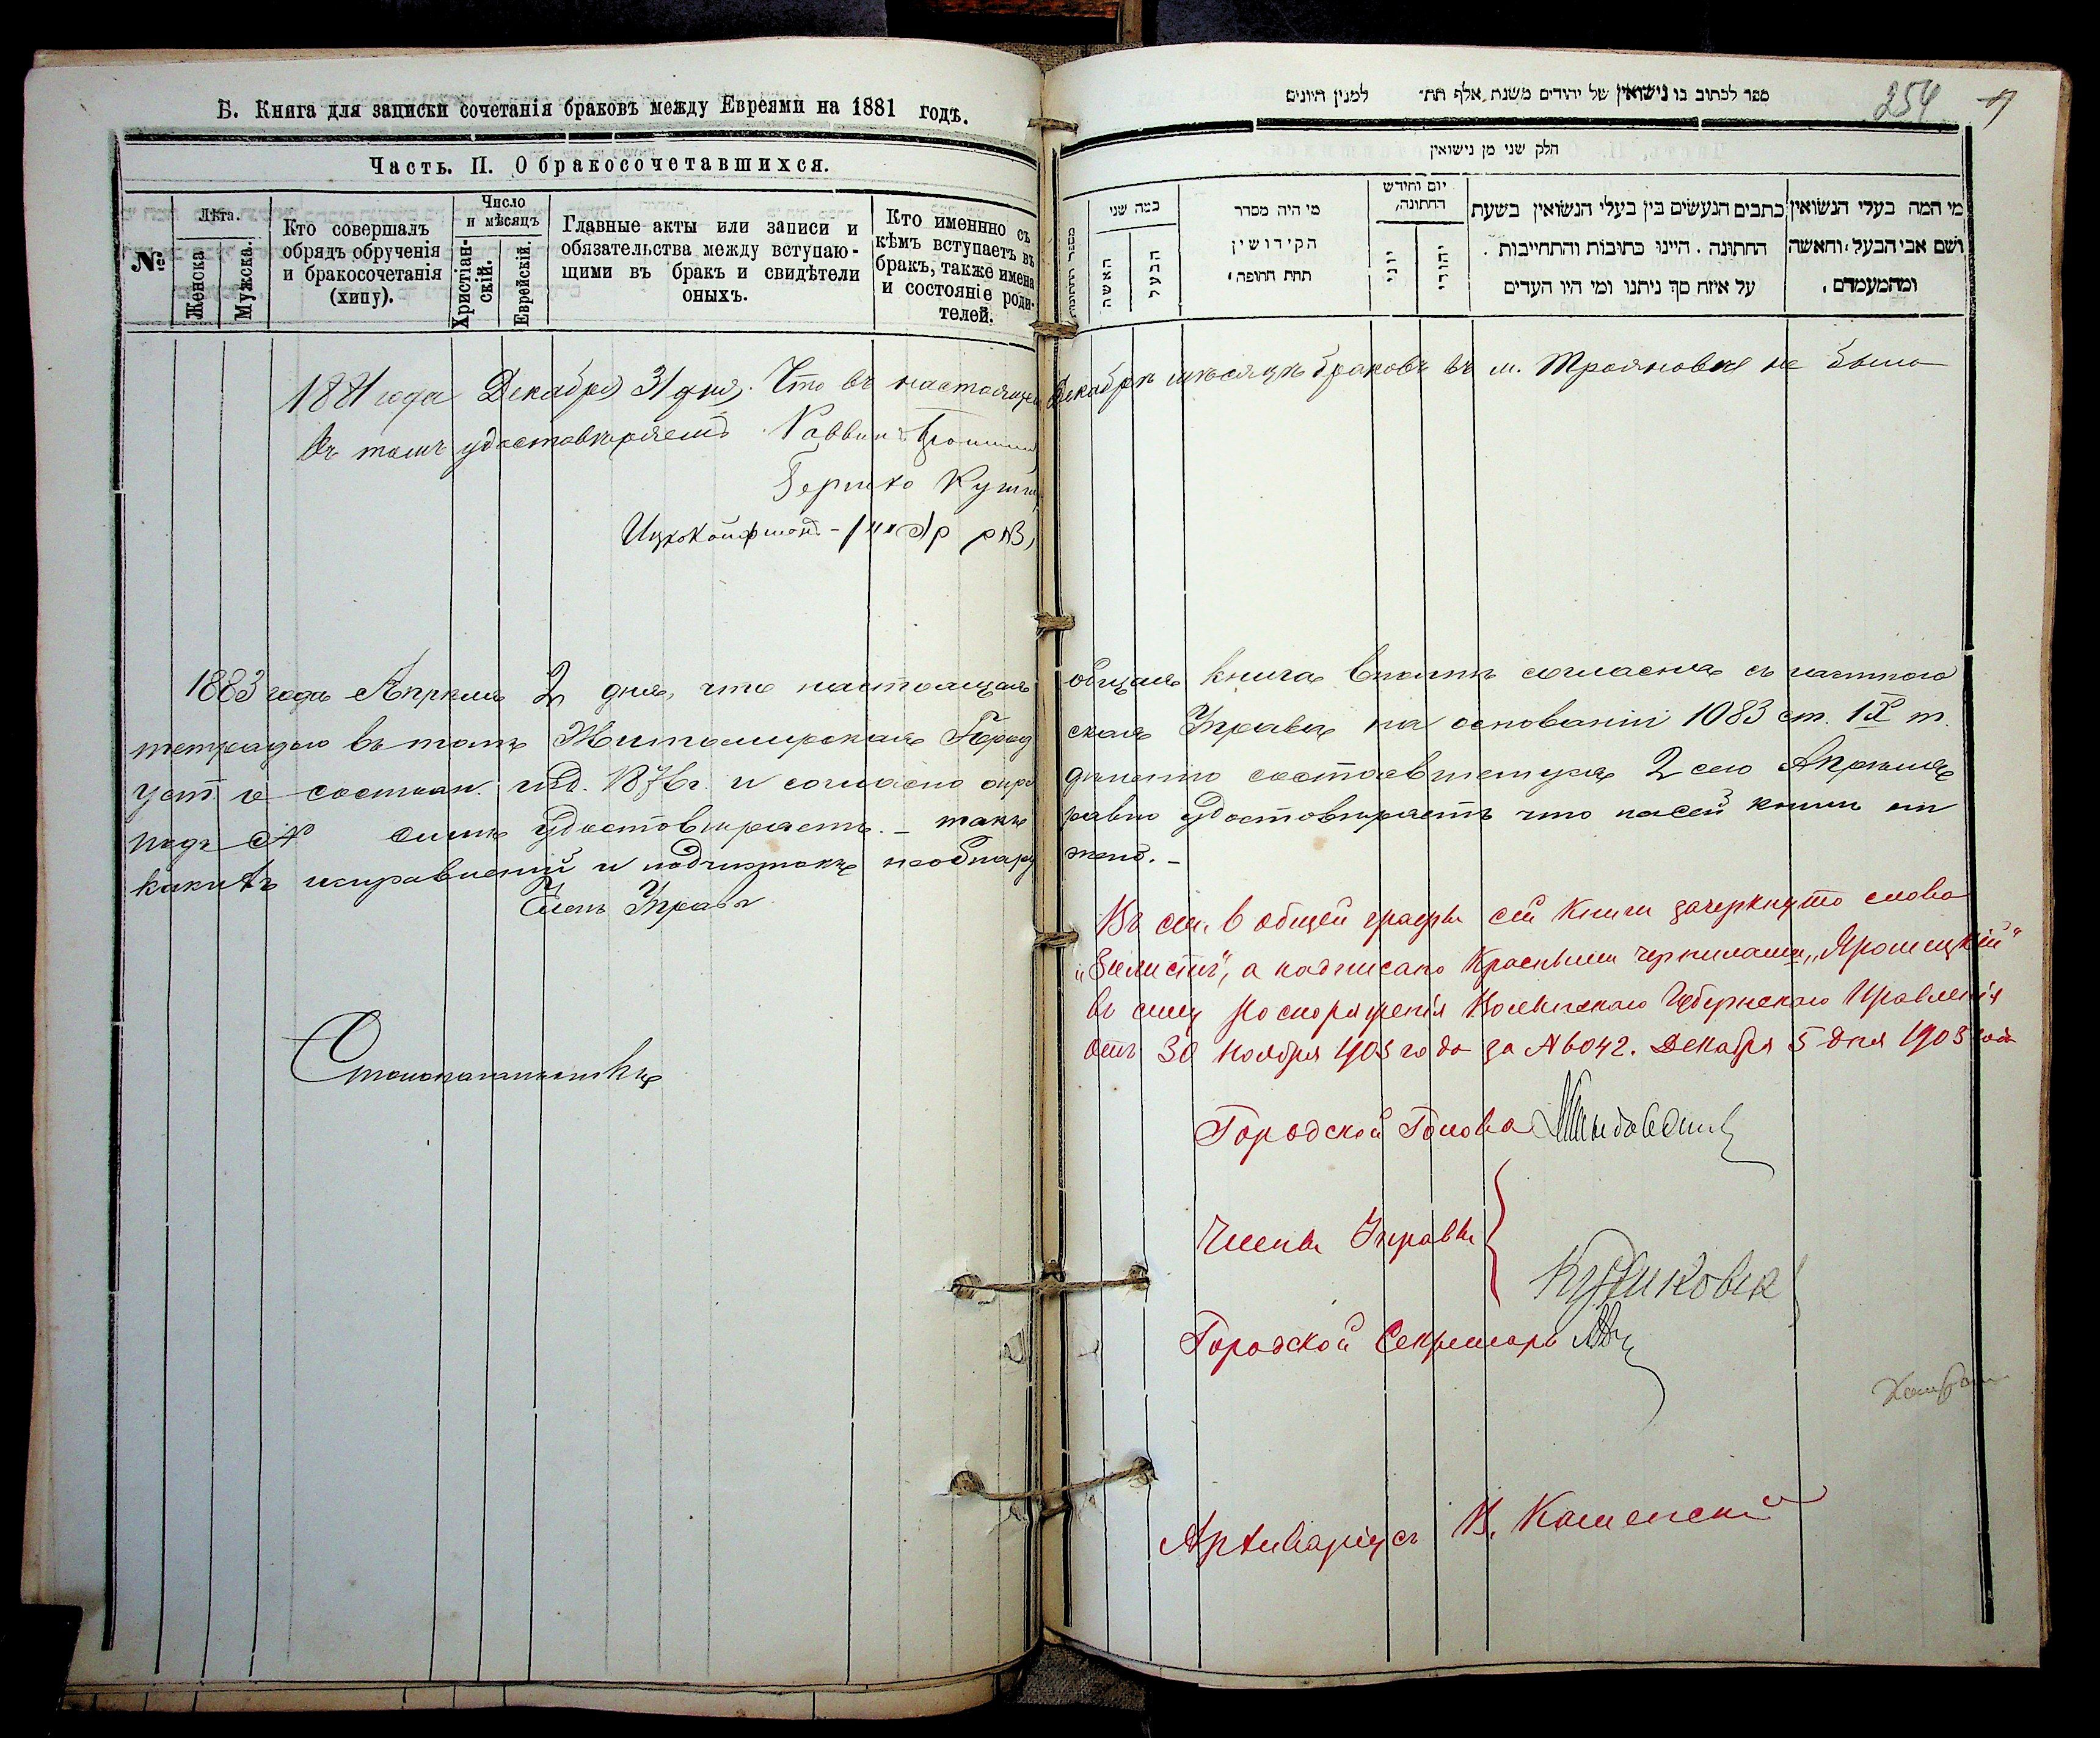 Б. Книга для записки сочетанія браковъ между Евреями на 1881 годъ.
Часть. II. О бракосочетавшихся.
№
Лѣта.
Женска
Мужска.
Кто совершалъ
обрядъ обрученія
и бракосочетанія
(хипу).
Число
и мѣсяцъ
Христіан-
скій.
Еврейскій.
Главные акты или записи и
обязательства между вступаю-
щими въ бракъ и свидѣтели
оныхъ.
Кто именнно съ
кѣмъ вступаетъ въ
бракъ, также имена
и состояніе роди-
телей.
ספר לכתוב בו נישואין של יהודים משנת אלף תת״ למנין היונים
254
חלק שני מן נישואין
מספר החתונות
כמה שני
האשה
הבעל
מי היה מסדר
הקידושין
תחת החופה
יום וחידש
החתונה
יוני
יהודי
כתבים הנעשים בין בעלי הנשואין בשעת
החתונה. היינו כתובות והתחייבות.
על איזה סך ניתנו ומי היו העדים
מי המה בעלי הנשואין
ושם אבי הבעל והאשה
ומהמעמדם
1881 года Декабря 31 дня. Что въ настоящемъ Декабрѣ мѣсяцѣ браковъ въ м. Трояновкѣ не было
въ томъ удостовѣряетъ Раввинъ
Гершко
1883 года Апрѣля 2 дня, что настоящая общая книга вполнѣ согласна съ частною
тетрадью въ томъ Житомирская Городская Управа на основаніи 1083 ст. IX т.
уст. о состоян. изд. 1876 г. и согласно опредѣленію состоявшемуся 2 сего Апрѣля
подъ № симъ удостовѣряетъ. – также равно удостовѣряетъ что въ сей книгѣ ни
какихъ исправленій и подчистокъ необнаружено. –
Членъ Управы
Столоначальникъ
Въ ст. 6 общей графы сей книги зачеркнуто слово
а надписано красными чернилами
въ силу распоряженія Волынскаго Губернскаго Правленія
отъ 30 ноября 1903 года за № 6042. Декабря 5 дня 1903 года
Городской Голова
Члены Управы
Городской Секретарь
Архиваріусъ К. Каменскій